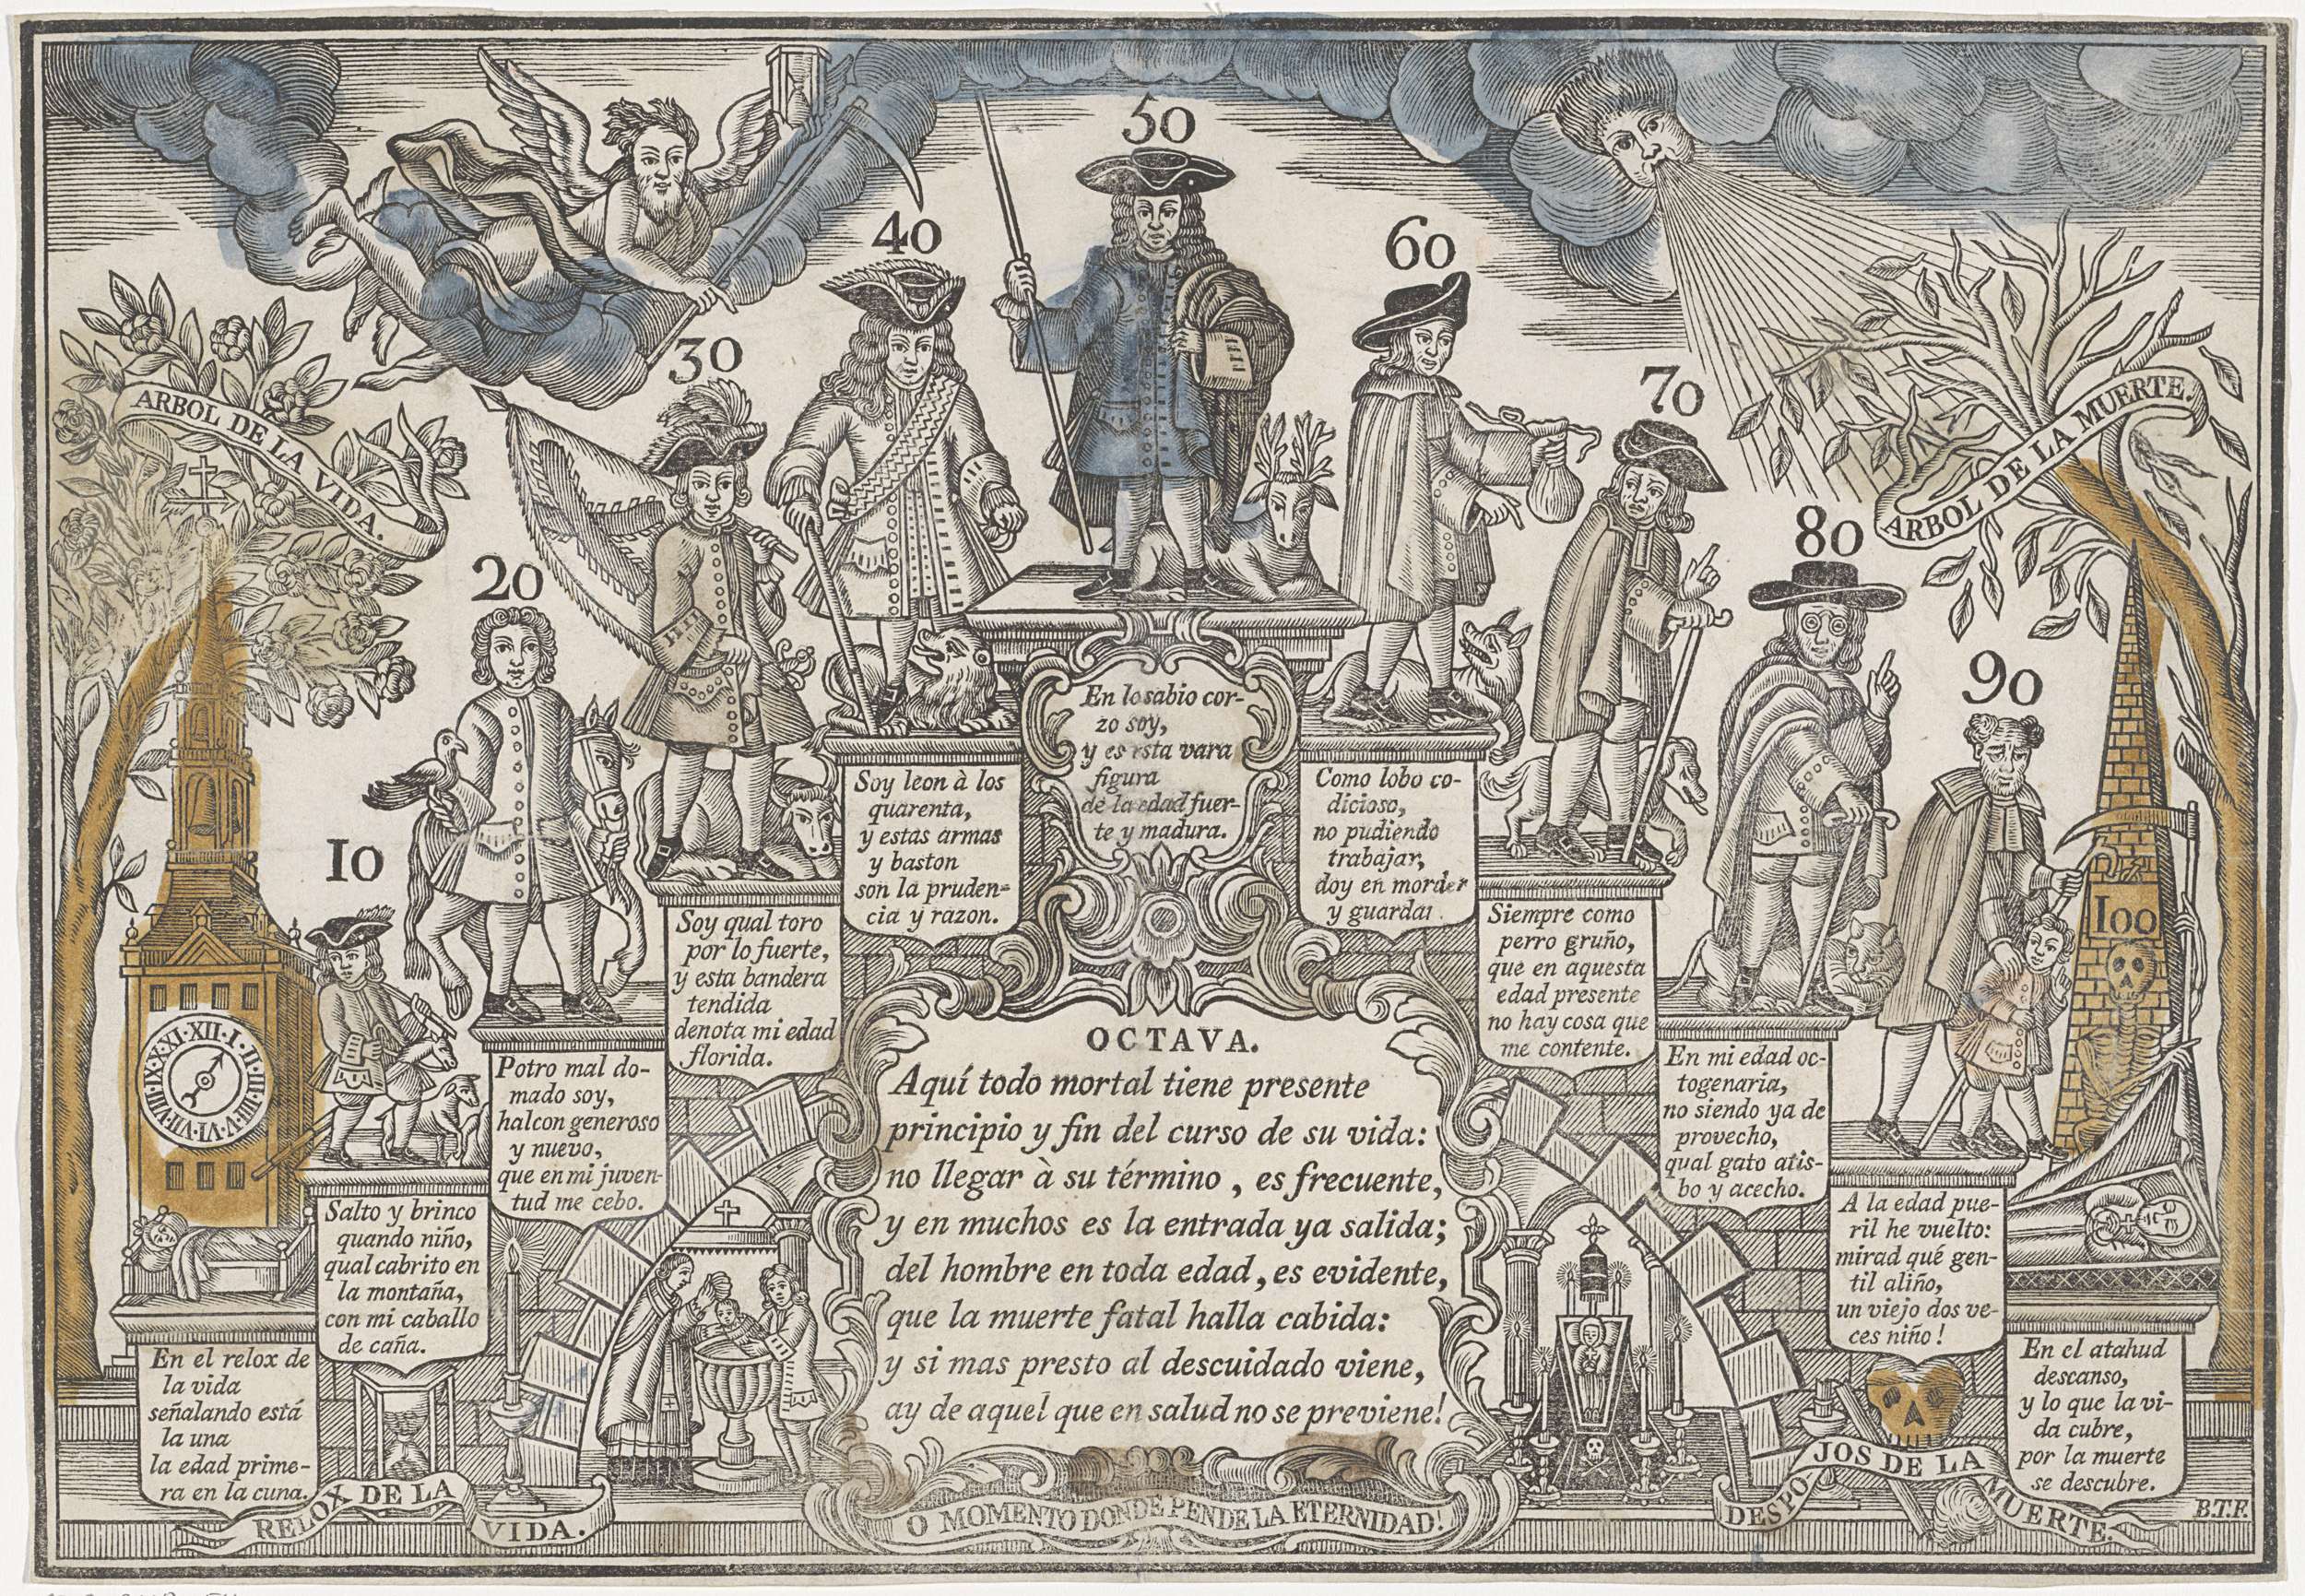 50
40
60
30
70
20
80
90
10
100
ARBOL DE LA VIDA.
ARBOL DE LA MUERTE.
XII · I · II · III · IIII · V · VI · VII · VIII · IX · X · XI
En el relox de
la vida
señalando está
la una
la edad prime-
ra en la cuna.
Salto y brinco
quando niño,
qual cabrito en
la montaña,
con mi caballo
de caña.
Potro mal do-
mado soy,
halcon generoso
y nuevo,
que en mi juven-
tud me cebo.
Soy qual toro
por lo fuerte,
y esta bandera
tendida
denota mi edad
florida.
Soy leon à los
quarenta,
y estas armas
y baston
son la pruden-
cia y razon.
En lo sabio cor-
zo soy,
y es esta vara
figura
de la edad fuer-
te y madura.
Como lobo co-
dicioso,
no pudiendo
trabajar,
doy en morder
y guardar.
Siempre como
perro gruño,
que en aquesta
edad presente
no hay cosa que
me contente.
En mi edad oc-
togenaria,
no siendo ya de
provecho,
qual gato atis-
bo y acecho.
A la edad pue-
ril he vuelto:
mirad qué gen-
til aliño,
un viejo dos ve-
ces niño!
En el atahud
descanso,
y lo que la vi-
da cubre,
por la muerte
se descubre.
OCTAVA.
Aquí todo mortal tiene presente
principio y fin del curso de su vida:
no llegar à su término, es frecuente,
y en muchos es la entrada ya salida;
del hombre en toda edad, es evidente,
que la muerte fatal halla cabida:
y si mas presto al descuidado viene,
ay de aquel que en salud no se previene!
RELOX DE LA VIDA.
O MOMENTO DONDE PENDE LA ETERNIDAD!
DESPOJOS DE LA MUERTE.
B.T.F.